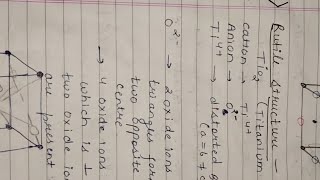 Rutile structure -
TiO2 (Titanium
Cation → Ti4+
Anion → O2-
Ti4+ → distorted
(a = b ≠ c
O2- → 2 oxide ions
triangles form
two opposite
centre
→ 4 oxide ions
which is ⊥
two oxide ion
are present